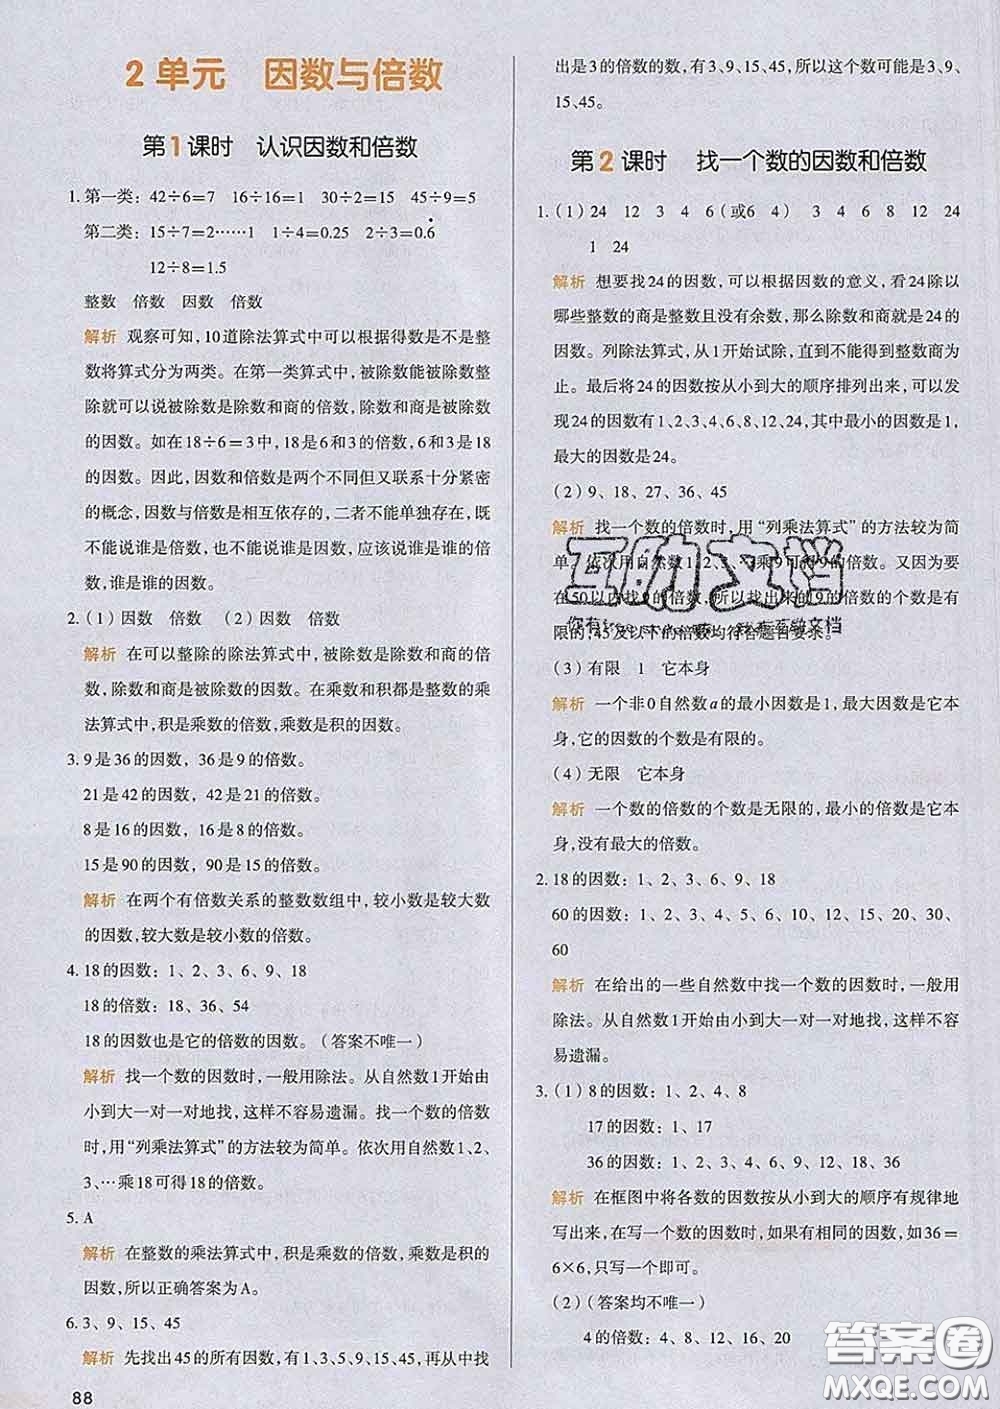 2 单元　因数与倍数
第1课时　认识因数和倍数
1. 第一类：42÷6=7　16÷16=1　30÷2=15　45÷9=5
第二类：15÷7=2……1　1÷4=0.25　2÷3=0.6̇
12÷8=1.5
整数　倍数　因数　倍数
解析　观察可知，10道除法算式中可以根据得数是不是整
数将算式分为两类。在第一类算式中，被除数能被除数整
除就可以说被除数是除数和商的倍数，除数和商是被除数
的因数。如在18÷6=3中，18是6和3的倍数，6和3是18
的因数。因此，因数和倍数是两个不同但又联系十分紧密
的概念，因数与倍数是相互依存的，二者不能单独存在，既
不能说谁是倍数，也不能说谁是因数，应该说谁是谁的倍
数，谁是谁的因数。
2.（1）因数　倍数　（2）因数　倍数
解析　在可以整除的除法算式中，被除数是除数和商的倍
数，除数和商是被除数的因数。在乘数和积都是整数的乘
法算式中，积是乘数的倍数，乘数是积的因数。
3. 9是36的因数，36是9的倍数。
21是42的因数，42是21的倍数。
8是16的因数，16是8的倍数。
15是90的因数，90是15的倍数。
解析　在两个有倍数关系的整数数组中，较小数是较大数
的因数，较大数是较小数的倍数。
4. 18的因数：1、2、3、6、9、18
18的倍数：18、36、54
18的因数也是它的倍数的因数。（答案不唯一）
解析　找一个数的因数时，一般用除法。从自然数1开始由
小到大一对一对地找，这样不容易遗漏。找一个数的倍数
时，用“列乘法算式”的方法较为简单。依次用自然数1、2、
3、…乘18可得18的倍数。
5. A
解析　在整数的乘法算式中，积是乘数的倍数，乘数是积的
因数，所以正确答案为A。
6. 3、9、15、45
解析　先找出45的所有因数，有1、3、5、9、15、45，再从中找
88
出是3的倍数的数，有3、9、15、45，所以这个数可能是3、9、
15、45。
第2课时　找一个数的因数和倍数
1.（1）24　12　3　4　6（或6　4）　3　4　6　8　12　24
1　24
解析　想要找24的因数，可以根据因数的意义，看24除以
哪些整数的商是整数且没有余数，那么除数和商就是24的
因数。列除法算式，从1开始试除，直到不能得到整数商为
止。最后将24的因数按从小到大的顺序排列出来，可以发
现24的因数有1、2、3、4、6、8、12、24，其中最小的因数是1，
最大的因数是24。
（2）9、18、27、36、45
解析　找一个数的倍数时，用“列乘法算式”的方法较为简
单。依次用自然数1、2、3、…乘9可得9的倍数。又因为要
在50以内找9的倍数，所以找出来的9的倍数的个数是有
限的，45及以下的倍数均符合题目要求。
（3）有限　1　它本身
解析　一个非0自然数a的最小因数是1，最大因数是它本
身，它的因数的个数是有限的。
（4）无限　它本身
解析　一个数的倍数的个数是无限的，最小的倍数是它本
身，没有最大的倍数。
2. 18的因数：1、2、3、6、9、18
60的因数：1、2、3、4、5、6、10、12、15、20、30、
60
解析　在给出的一些自然数中找一个数的因数时，一般用
除法。从自然数1开始由小到大一对一对地找，这样不容
易遗漏。
3.（1）8的因数：1、2、4、8
17的因数：1、17
36的因数：1、2、3、4、6、9、12、18、36
解析　在框图中将各数的因数按从小到大的顺序有规律地
写出来，在写一个数的因数时，如果有相同的因数，如36=
6×6，只写一个即可。
（2）（答案均不唯一）
4的倍数：4、8、12、16、20
互助文档
答案圈
MXQE.COM